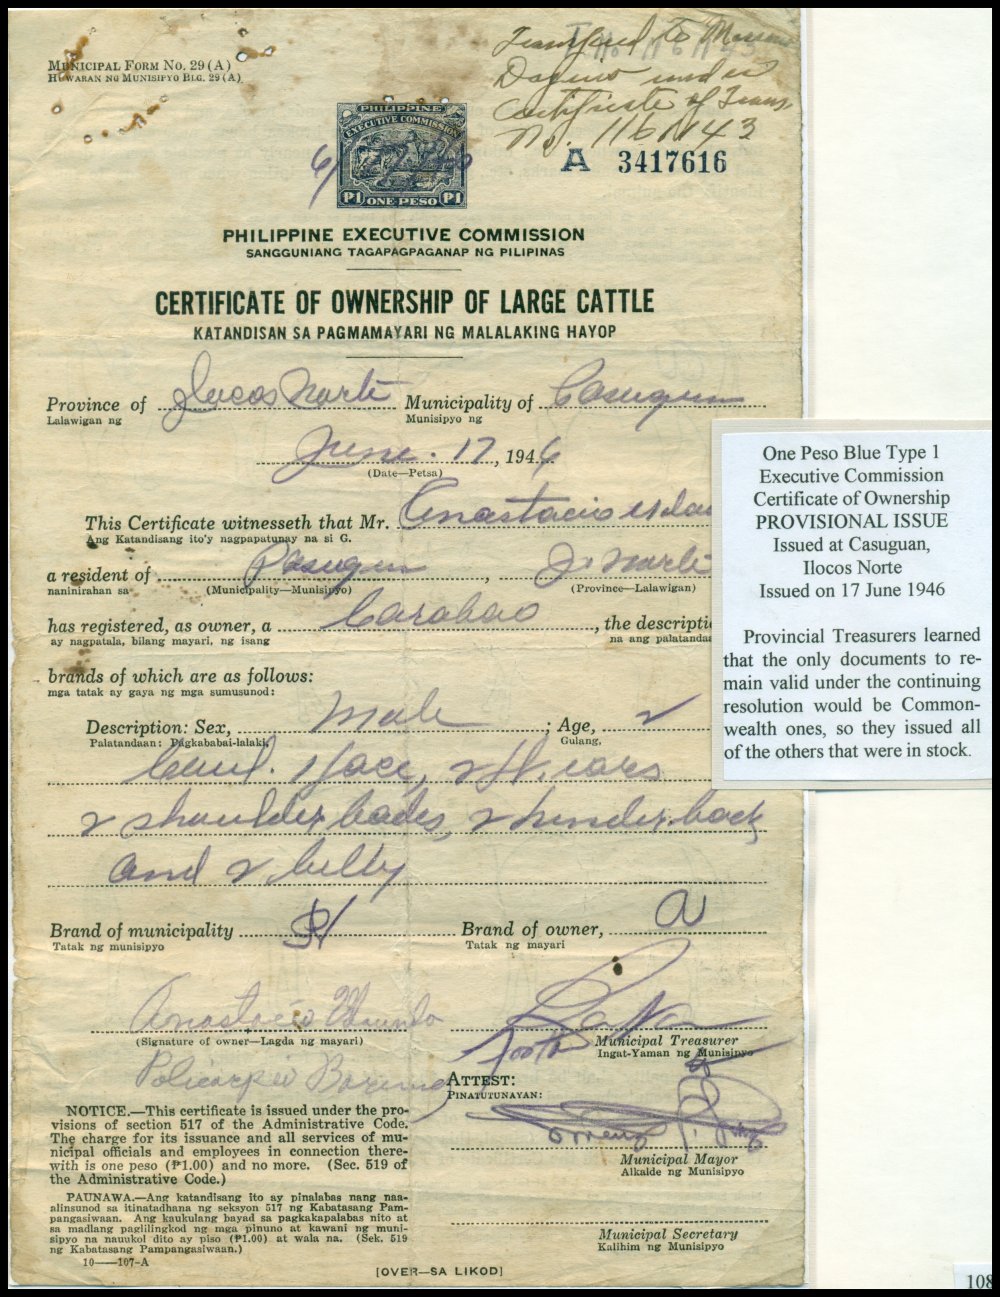 MUNICIPAL FORM NO. 29 (A)
HUWARAN NG MUNISIPYO BLG. 29 (A)
Transferred to
under
Certificate of Trans.
No. 1161143
PHILIPPINE
EXECUTIVE COMMISSION
P1 ONE PESO P1
A 3417616
PHILIPPINE EXECUTIVE COMMISSION
SANGGUNIANG TAGAPAGPAGANAP NG PILIPINAS
CERTIFICATE OF OWNERSHIP OF LARGE CATTLE
KATANDISAN SA PAGMAMAYARI NG MALALAKING HAYOP
Province of Ilocos Norte Municipality of Pasuquin
Lalawigan ng Munisipyo ng
June 17, 1946
(Date—Petsa)
This Certificate witnesseth that Mr. Anastacio
Ang Katandisang ito'y nagpapatunay na si G.
a resident of Pasuquin, I. Norte
naninirahan sa (Municipality—Munisipyo) (Province—Lalawigan)
has registered, as owner, a Carabao, the descripti
ay nagpatala, bilang mayari, ng isang na ang palatandaa
brands of which are as follows:
mga tatak ay gaya ng mga sumusunod:
Description: Sex, Male; Age,
Palatandaan: Pagkababai-lalaki, Gulang,
face, ears
shoulder
and 2 belly
Brand of municipality Brand of owner, a
Tatak ng munisipyo Tatak ng mayari
Anastacio
(Signature of owner—Lagda ng mayari)
Municipal Treasurer
Ingat-Yaman ng Munisipyo
ATTEST:
PINATUTUNAYAN:
Municipal Mayor
Alkalde ng Munisipyo
Municipal Secretary
Kalihim ng Munisipyo
NOTICE.—This certificate is issued under the pro-
visions of section 517 of the Administrative Code.
The charge for its issuance and all services of mu-
nicipal officials and employees in connection there-
with is one peso (₱1.00) and no more. (Sec. 519 of
the Administrative Code.)
PAUNAWA.—Ang katandisang ito ay pinalabas nang naa-
alinsunod sa itinatadhana ng seksyon 517 ng Kabatasang Pam-
pangasiwaan. Ang kaukulang bayad sa pagkakapalabas nito at
sa madlang paglilingkod ng mga pinuno at kawani ng muni-
sipyo na nauukol dito ay piso (₱1.00) at wala na. (Sek. 519
ng Kabatasang Pampangasiwaan.)
10——107-A
[OVER—SA LIKOD]
One Peso Blue Type 1
Executive Commission
Certificate of Ownership
PROVISIONAL ISSUE
Issued at Casuguan,
Ilocos Norte
Issued on 17 June 1946
Provincial Treasurers learned
that the only documents to re-
main valid under the continuing
resolution would be Common-
wealth ones, so they issued all
of the others that were in stock.
108